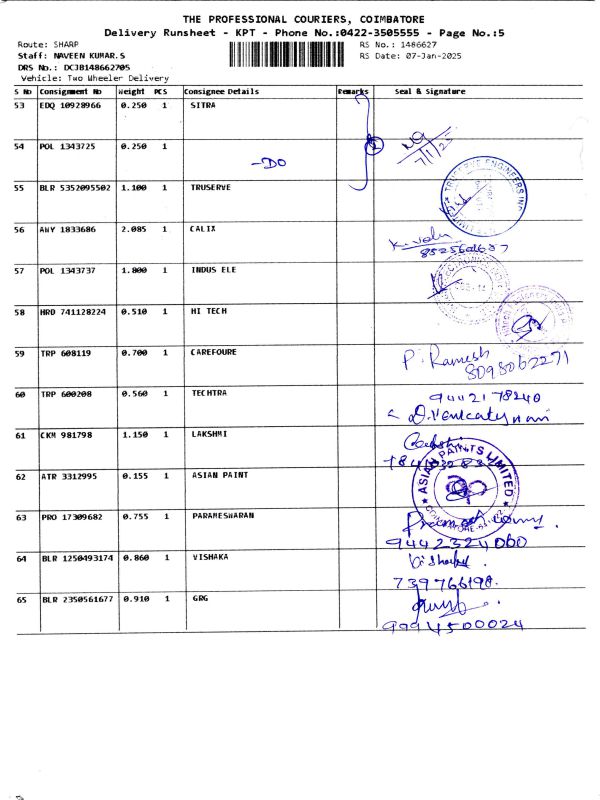 THE PROFESSIONAL COURIERS, COIMBATORE
Delivery Runsheet - KPT - Phone No.:0422-3505555 - Page No.:5
Route: SHARP
RS No.: 1486627
Staff: NAVEEN KUMAR.S
RS Date: 07-Jan-2025
DRS No.: DC3B148662705
Vehicle: Two Wheeler Delivery
S No Consignment No Weight PCS Consignee Details Remarks Seal & Signature
53 EDQ 10928966 0.250 1 SITRA
54 POL 1343725 0.250 1
-DO
7/1/25
55 BLR 5352095502 1.100 1 TRUSERVE
TRUSERVE ENGINEERS INC
56 ANY 1833686 2.085 1 CALIX
57 POL 1343737 1.800 1 INDUS ELE
58 HRD 741128224 0.510 1 HI TECH
59 TRP 608119 0.700 1 CAREFOURE
P. Ramesh
8098062271
60 TRP 600208 0.560 1 TECHTRA
9442178240
61 CKM 981798 1.150 1 LAKSHMI
62 ATR 3312995 0.155 1 ASIAN PAINT
ASIAN PAINTS LIMITED
63 PRO 17309682 0.755 1 PARAMESWARAN
9442324060
64 BLR 1250493174 0.860 1 VISHAKA
739766198.
65 BLR 2350561677 0.910 1 GRG
9994500024